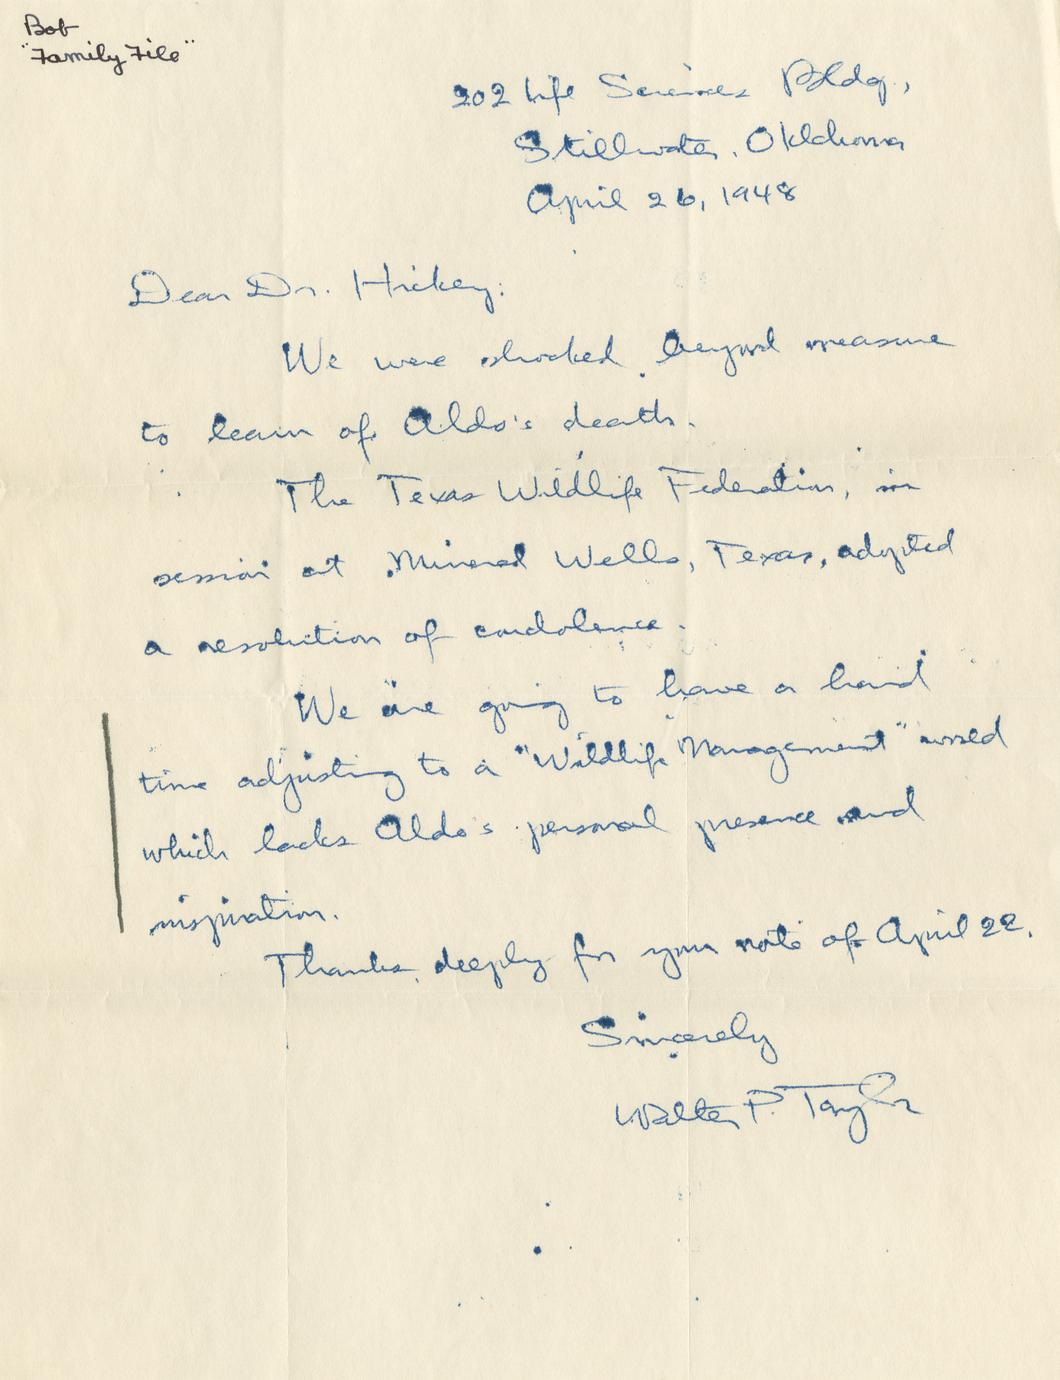 Bob
"Family File"
202 Life Sciences Bldg.,
Stillwater, Oklahoma
April 26, 1948
Dear Dr. Hickey:
We were shocked beyond measure
to learn of Aldo's death.
The Texas Wildlife Federation, in
session at Mineral Wells, Texas, adopted
a resolution of condolence.
We are going to have a hard
time adjusting to a "Wildlife Management" world
which lacks Aldo's personal presence and
inspiration.
Thanks deeply for your note of April 22.
Sincerely
Walter P. Taylor